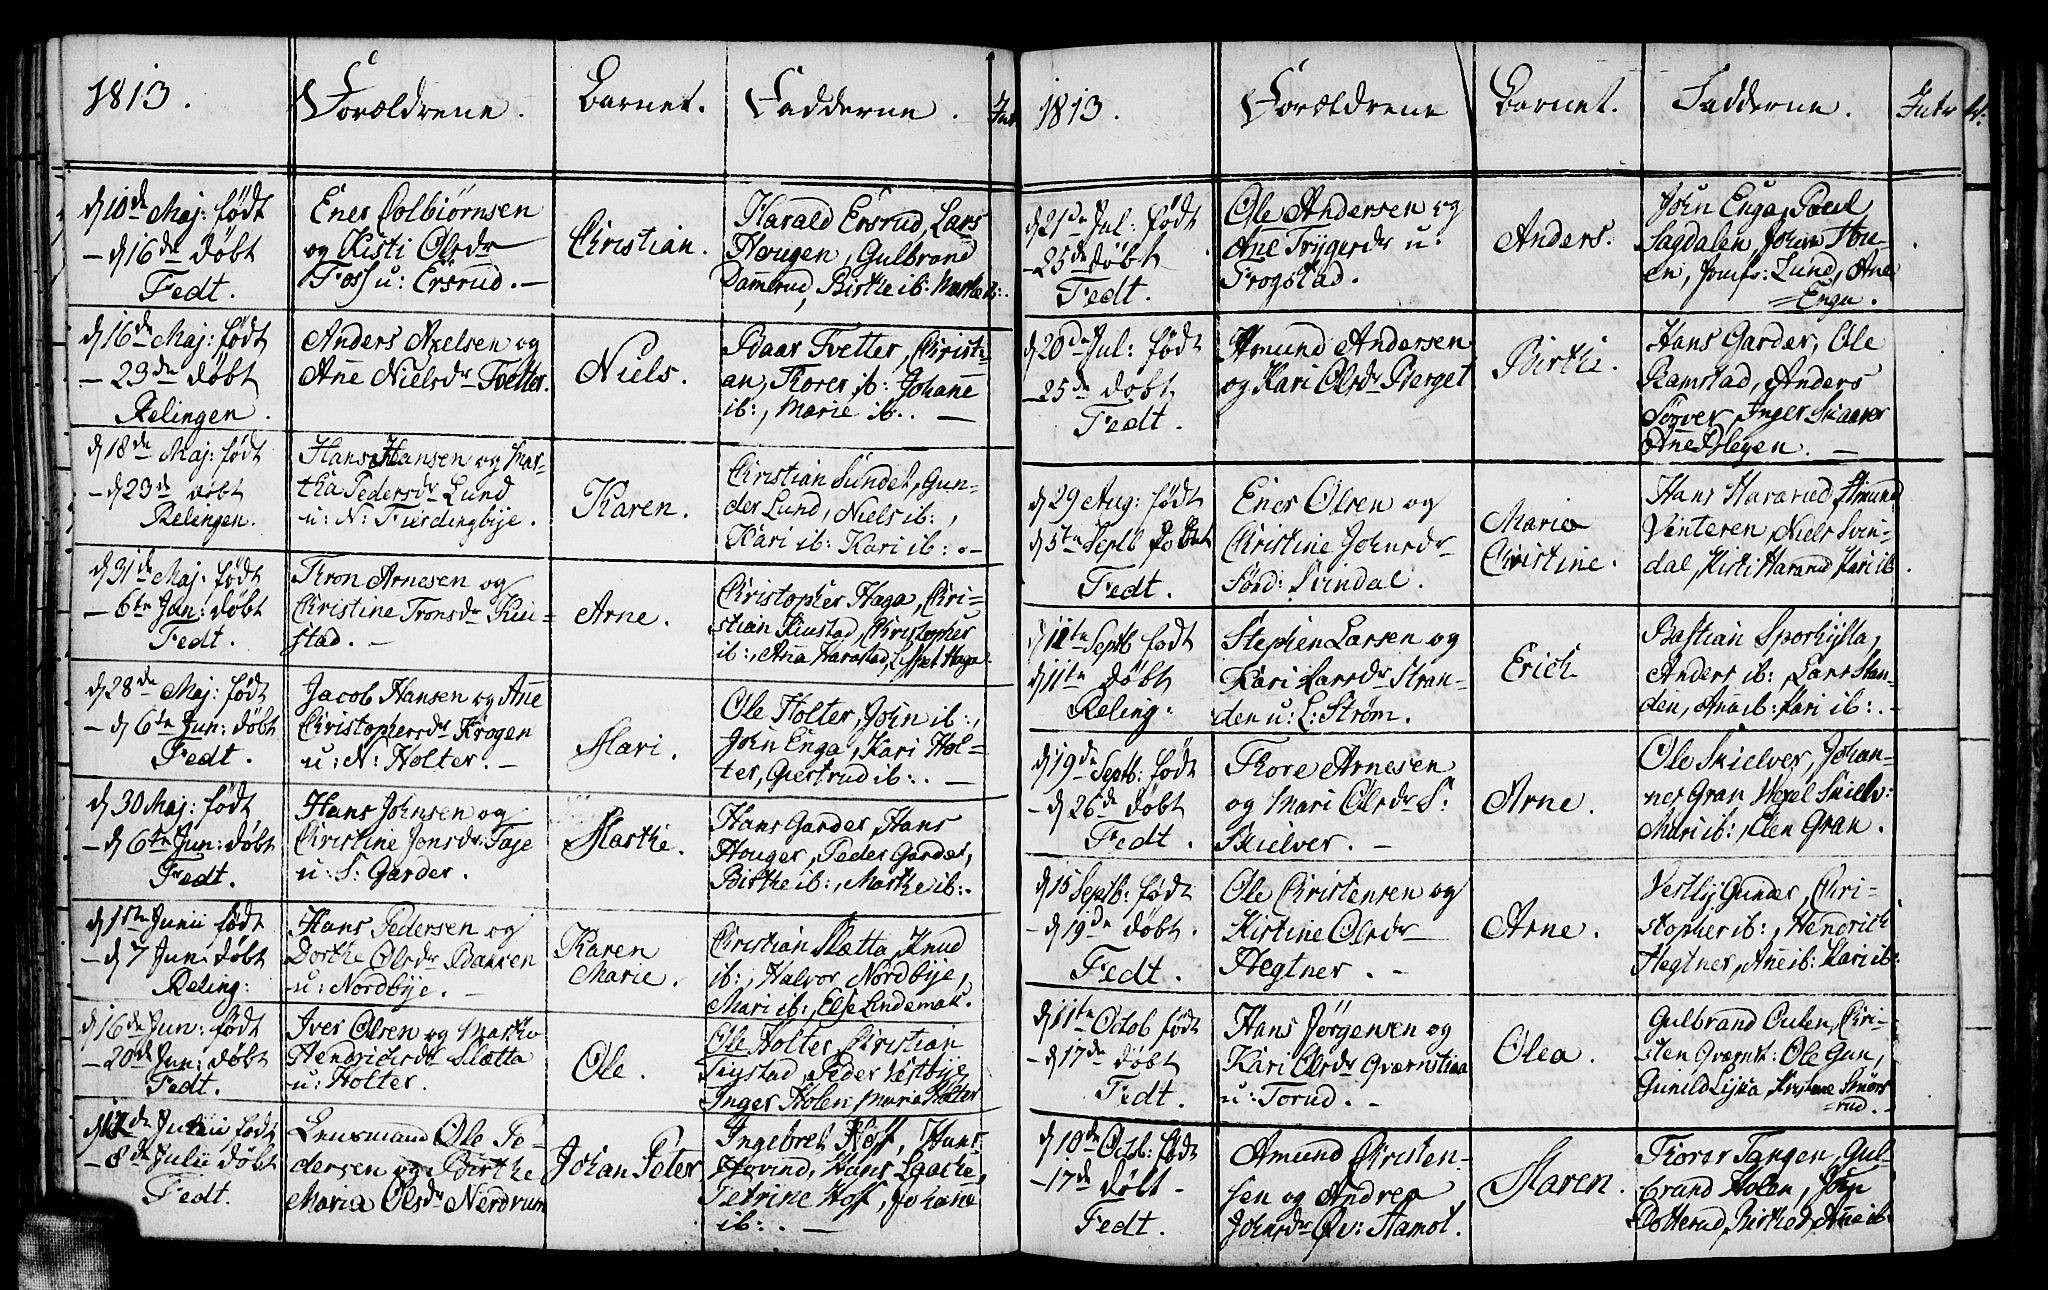 1813.
Forældrene.
Barnet.
Fadderne.
Int
d 10de Maj: født
– d 16de døbt
Fedt.
Ener Colbiørnsen
og Kisti Olsdr
Foss u: Ersrud. –
Christian.
Harald Ersrud, Lars
Hougen, Gulbrand
Damsrud, Birthe ib: Marthe ib:.
d 16de Maj: født
– 23de døbt
Relingen.
Anders Axelsen og
Ane Nielsdr Tvetter.
Niels.
Baar Tvetter, Christi-
an, Thorer ib: Johane
ib:, Marie ib:. –
d 18de Maj: født
– d 23de døbt
Relingen.
Hans Hansen og Mar-
tha Pedersdr Lund
u: N: Fierdingbÿe.
Karen.
Christian Sundet, Gun-
der Lund, Niels ib:,
Kari ib: Kari ib: . –
d 31de Maj: født
– 6te Jun: døbt
Fedt.
Tron Arnesen og
Christine Tronsdr Kiu-
stad. –
Arne.
Christopher Haga, Chri-
stian Kiustad, Christopher
ib:, Ana Harastad, Lisbet Haga
d 28de Maj: født
– d 6te Jun: døbt
Fedt.
Jacob Hansen og Ane
Christophersdr Krogen
u: N: Holter. –
Mari.
Ole Holter, John ib:,
John Enga, Kari Hol-
ter, Giertrud ib:. –
d 30 Maj: født
– d 6te Jun: døbt
Fedt.
Hans Johnsen og
Christine Jonsdr Faje
u: S: Garder.
Marthe.
Hans Garder, Hans
Houger, Peder Garder,
Birthe ib:, Marthe ib:.
d 1ste Junii født
– d 7 Jun: døbt
Reling:
Hans Pedersen og
Dorthe Olsdr Bakken
u: Nordbÿe. –
Karen
Marie.
Christian Slætta, Knud
ib:, Halvor Nordbÿe,
Mari ib:, Else Lindemark.
d 16de Jun: født
– 20de Jun: døbt
Fedt.
Iver Olsen og Marthe
Hendrichsdr Slætta
u: Holter.
Ole.
Ole Holter, Christian
Tÿstad, Peder Vestbÿe
Inger Holen, Marie Holter
d de Junii født
– 8de Julii døbt
Fedt.
Lensmand Ole Pe-
dersen og Birthe
Maria Olsdr Nerdrum
Johan Peter
Ingebret Hoff, Hans
Hovind, Hans Laache,
Petrine Hoff, Johane
ib:. –
1813.
Forældrene
Barnet.
Fadderne.
Intr
d 21de Jul: født
– 25de døbt
Fedt.
Ole Andersen og
Ane Trÿgersdr u:
Frogstad.
Anders.
John Enga, Poul
Sagdalen, Johan Hou-
en, Jomfr: Lund, Ane
Enga.
d 20de Jul: født
– 25de døbt
Fedt.
Amund Andersen
og Kari Olsdr Berget
Birthe.
Hans Garder, Ole
Ramstad, Anders
Torver, Inger Skaarer
Ane Østeÿen. –
d 29 Aug: født
d 5te Septb døbt
Fedt.
Ener Olsen og
Christine Johnsdr
Sønd: Svindal.
Marie
Christine.
Hans Hararud, Amund
Vinteren, Niels Svin-
dal, Kisti Hararud, Kari ib.
d 11te Septb født
d 11te døbt
Reling:
Stephen Larsen og
Kari Larsdr Stran-
den u: L: Strøm.
Erich
Bastian Sporhysta,
Anders ib:, Lars Stran-
den, Ane ib: Kari ib:. –
d 19de Septb: født
– d 26de døbt
Fedt.
Thore Arnesen
og Mari Olsdr S:
Skielver. –
Arne.
Ole Skielver, Johan-
nes Gran, Wexel Skielv:
Mari ib:, Elen Gran.
d 15 Septb: født
– d 19de døbt.
Fedt.
Ole Christensen og
Kirstine Olsdr
Hegtner. –
Arne.
Vestlÿ Gunder, Chri-
stopher ib:, Hendrich
Hegtner, Ane ib: Kari ib:
d 11te Octob født
– d 17de døbt
Fedt.
Hans Jørgensen og
Kari Olsdr Qværnstua
u: Torud. –
Olea.
Gulbrand Outen, Chri-
sten Qvernst: Ole Gun,
Gunild Lÿska, Kirstine Smørs
rud. –
d 10de Octob: født
– 17de døbt –
Fedt.
Amund Christen-
sen og Andrea
Johnsdr Øv: Hamot.
Maren.
Thorer Tangen, Gul-
brand Holen, John
Dotterud, Birthe Ane ib.